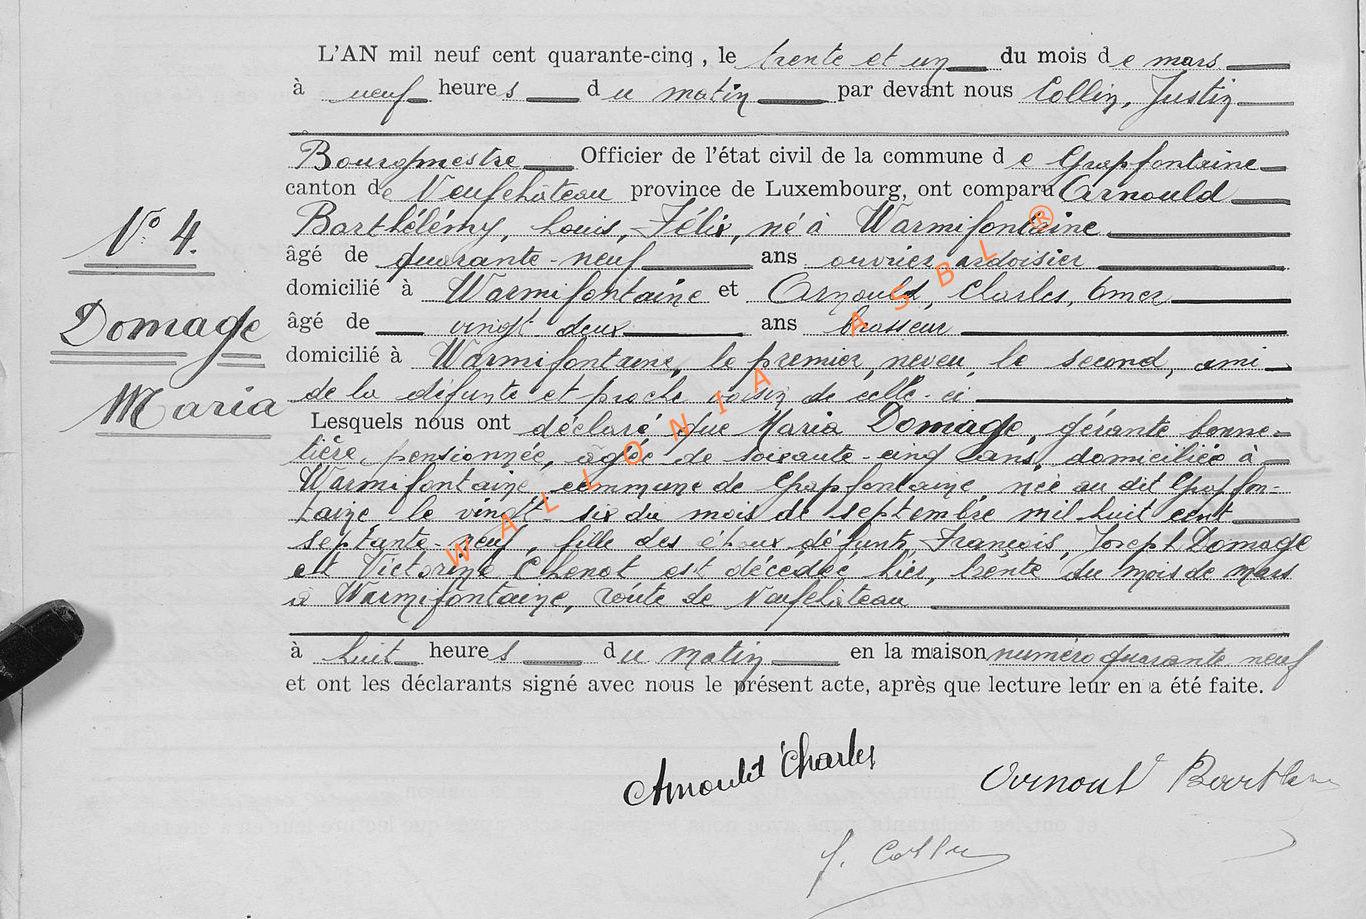 L'AN mil neuf cent quarante-cinq, le trente et un du mois de mars
à neuf heures du matin par devant nous Collin, Justin
Bourgmestre Officier de l'état civil de la commune de Grapfontaine
canton de Neufchâteau province de Luxembourg, ont comparu Arnould
N° 4.
Barthélémy, Louis, Félix, né à Warmifontaine
âgé de quarante-neuf ans ouvrier ardoisier
domicilié à Warmifontaine et Arnould, Charles, Omer
Domage
âgé de vingt-deux ans brasseur
domicilié à Warmifontaine, le premier, neveu, le second, ami
Maria
de la défunte et proche voisin de celle-ci
Lesquels nous ont déclaré que Maria Domage, gérante bonne-
tière, pensionnée, âgée de soixante-cinq ans, domiciliée à
Warmifontaine, commune de Grapfontaine, née au dit Grapfon-
taine le vingt-six du mois de septembre mil huit cent
septante-neuf, fille des époux défunts, François, Joseph Domage
et Victorine Chenot est décédée hier, trente du mois de mars
à Warmifontaine, route de Neufchâteau
à huit heures du matin en la maison numéro quarante neuf
et ont les déclarants signé avec nous le présent acte, après que lecture leur en a été faite.
Arnould Charles
Arnould Barthélemy
J. Collin
WALLONIA ASBL ®